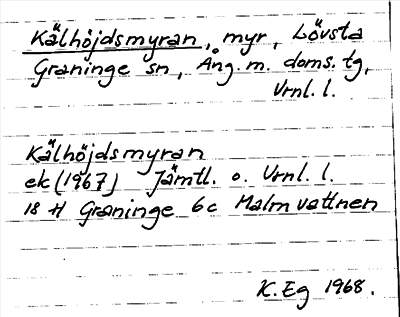 Kälhöjdsmyran, myr, Lövsta
Graninge sn, Ång. m. doms. tg,
Vrnl. l.
Kälhöjdsmyran
ek (1967) Jämtl. o. Vrnl. l.
18 H Graninge 6c Malmvattnen
K. Eg 1968.